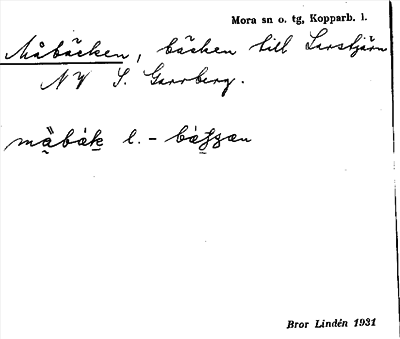 Mora sn o. tg, Kopparb. l.
Måbäcken, bäcken till Larstjärn
NV S. Garrberg.
l. –
Bror Lindén 1931